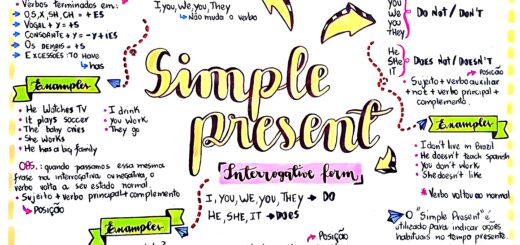 Verbos terminados em:
O,S,X,SH,CH = +ES
Vogal + Y = +S
Consoante + Y = -Y +IES
Os demais = +S
Excessões: To Have
has
Examples
He Watches TV
It plays soccer
The baby cries
She works
He has a big family
I drink
You work
They go
OBS.: quando passamos essa mesma
frase na interrogativa ou negativa, o
verbo volta a seu estado normal.
Sujeito + verbo principal + complemento
Posição
Examples
I, you, We, you, They
Não muda o verbo
Simple
present
Interrogative form
I, You, We, You, They → DO
He, She, It → Does
Posição
You
We
you
they
Do Not / Don't
He
She
It
Does Not / Doesn't
Posição
Sujeito + verbo auxiliar
+ not + verbo principal +
complemento.
Examples
I don't live in Brazil
He doesn't teach spanish
You don't work
She doesn't like
Verbo volta ao normal
O "Simple Present" é
utilizado para indicar ações
habituais no tempo presente.